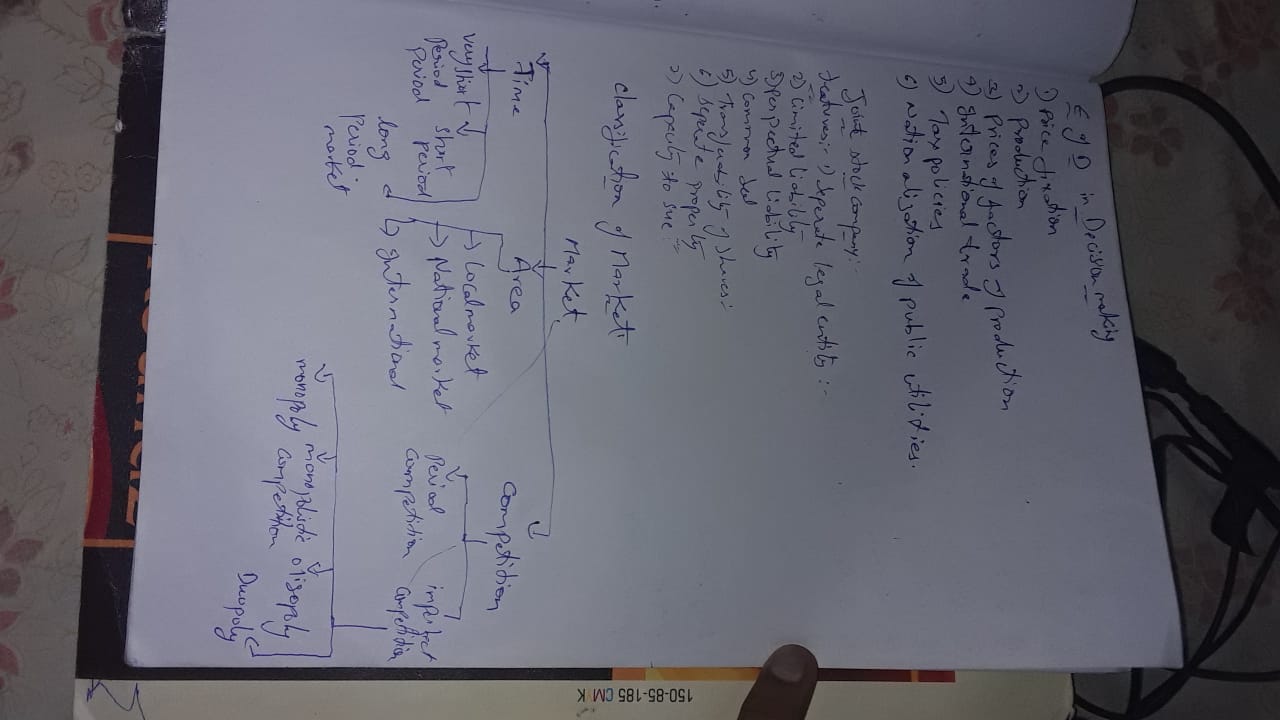 E of D in Decision making
1) Price fixation
2) Production
3) Prices of factors of production
4) International trade
5) Tax policies
6) Nationalization of public utilities.
Joint stock company:-
features:- 1) Seperate legal entity:-
2) Limited liability
3) perpectual liability
4) common seal
5) Transferability of shares:-
6) Seperate property
7) Capacity to sue:-
Classification of Market:
Market
Time
Area
Competition
very short Period
short period
Period
long Period market
Local market
National market
International
Period competition
imperfect competition
monopoly
monopolistic competition
oligopoly
Duopoly
150-85-185 CM K